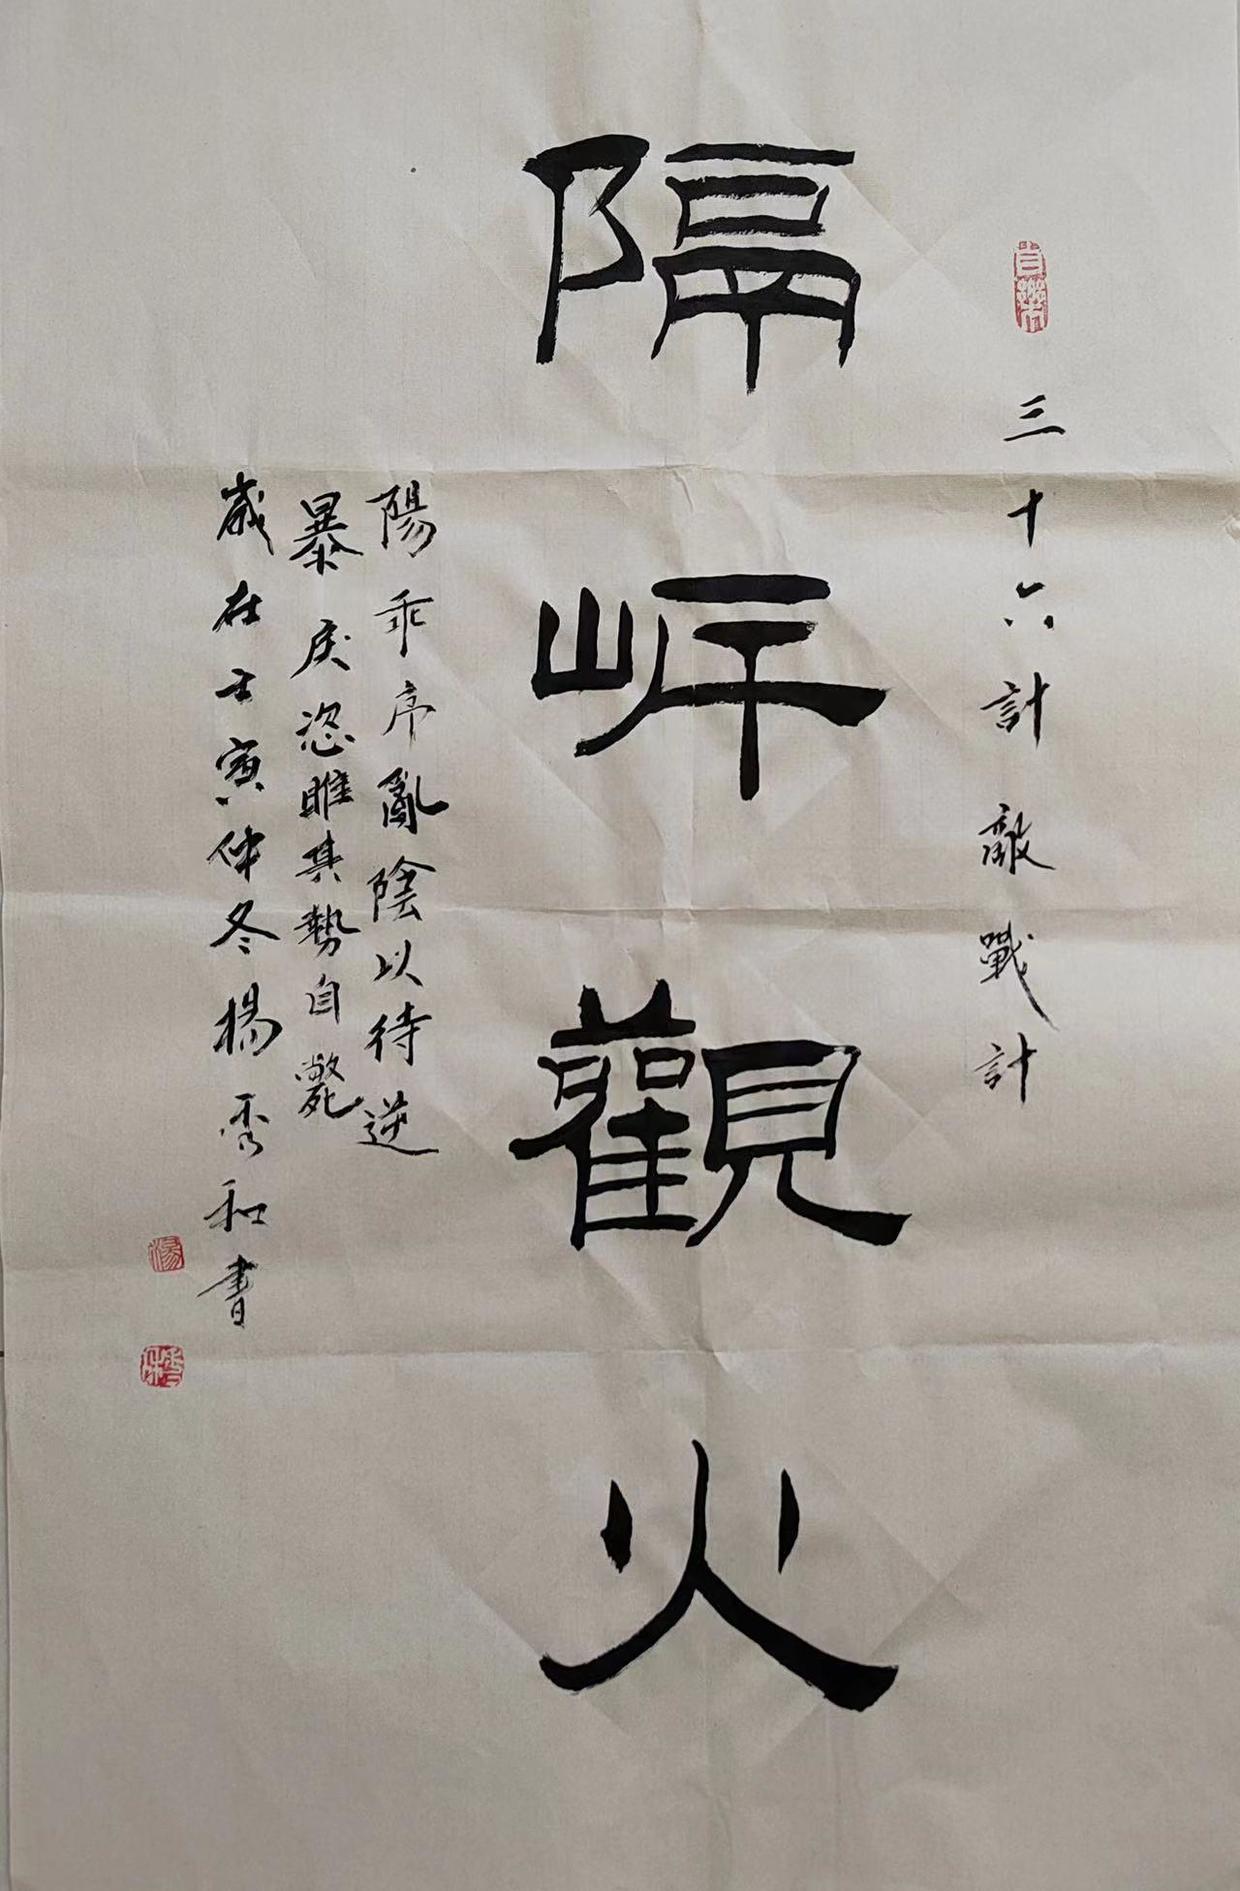 自樂
三十六計敵戰計
隔岸觀火
陽乖序亂陰以待逆
暴戾恣睢其勢自斃
歲在壬寅仲冬楊秀和書
楊
秀和